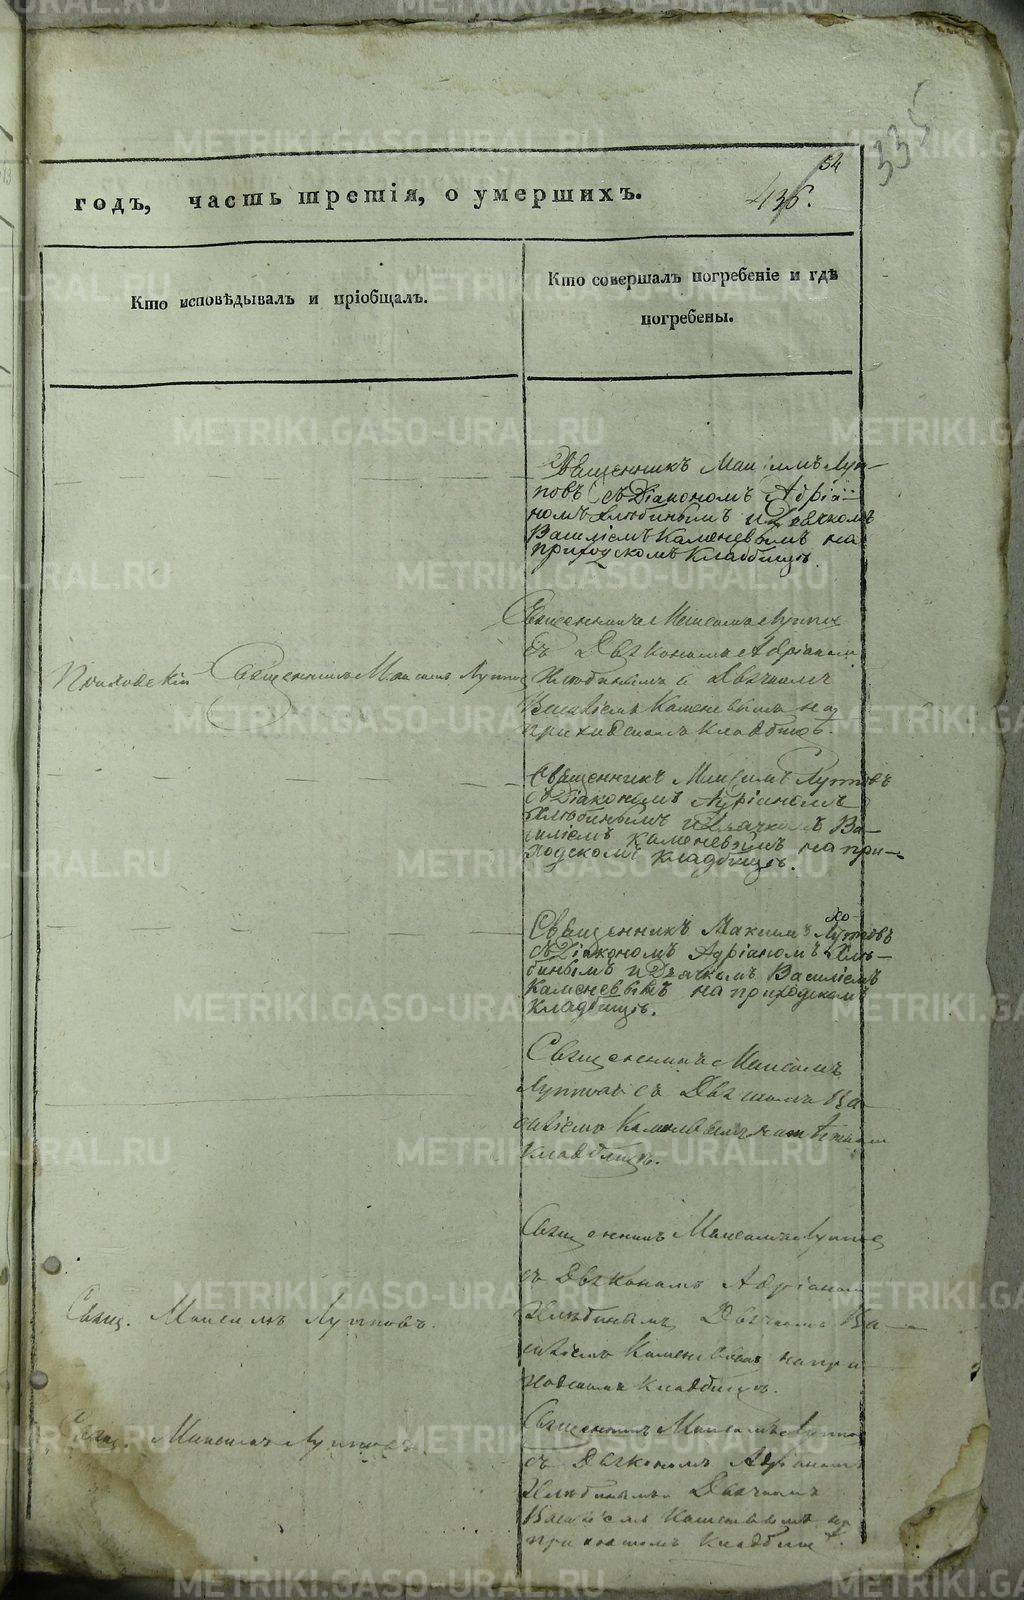 335
54
436.
годъ, часть третія, о умершихъ.
Кто исповѣдывалъ и пріобщалъ.
Кто совершалъ погребеніе и гдѣ
погребены.
Священникъ Максимъ Луп-
повъ съ Діакономъ Адріа-
номъ Хлюбинымъ и Дьячкомъ
Василіемъ Каменевымъ на
приходскомъ Кладбищѣ.
Приходскій Священникъ Максимъ Луппов
Священникъ Максимъ Луппов
съ Дьякономъ Адріаном
Хлюбинымъ и Дьячкомъ
Василіемъ Каменевымъ на
приходскомъ Кладбищѣ.
Священникъ Максимъ Луповъ
съ Діакономъ Адріаномъ
Хлюбинымъ и Дьячкомъ Ва-
силіемъ Каменевымъ на при-
ходскомъ кладбищѣ.
Священникъ Максимъ Луповъ
съ Діакономъ Адріаномъ Хлю-
бинымъ и Дьячкомъ Василіемъ
Каменевымъ на приходскомъ
Кладбищѣ.
Священникъ Максимъ
Луппов съ Дьячкомъ Ва-
силіемъ Каменевымъ на
Кладбищѣ.
Свящ. Максимъ Лупповъ.
Священникъ Максимъ Луппов
съ Дьякономъ Адріаном
Хлюбинымъ Дьячкомъ Ва-
силіемъ Каменевым на при
ходскомъ Кладбищѣ.
Свящ. Максимъ Лупповъ
Священникъ Максимъ Луппов
съ Дьякономъ Адріаномъ
Хлюбинымъ Дьячкомъ
Василіемъ Каменевымъ на
приходскомъ Кладбищѣ.
METRIKI.GASO-URAL.RU